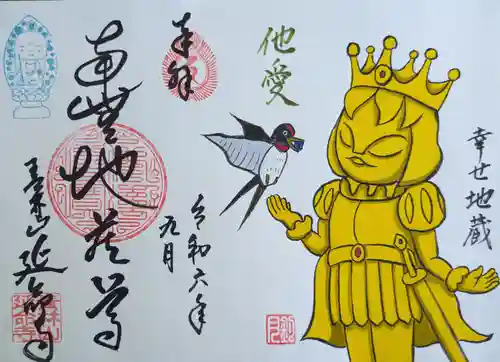 奉拝
南無地蔵尊
延命寺
令和六年
九月
他愛
幸せ地蔵